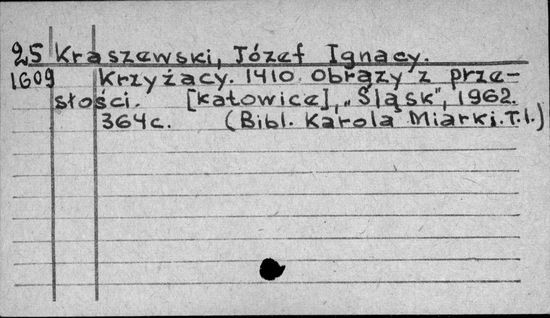 25 Kraszewski, Józef Ignacy.
1609 Krzyżacy. 1410. Obrazy z prze-
słości. [Katowice], „Śląsk", 1962.
364c. (Bibl. Karola Miarki. T.I.)